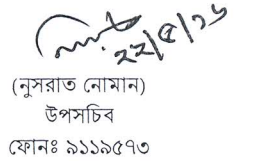 ২২/৫/১৬
(নুসরাত নোমান)
উপসচিব
ফোনঃ ৯১১৯৫৭৩